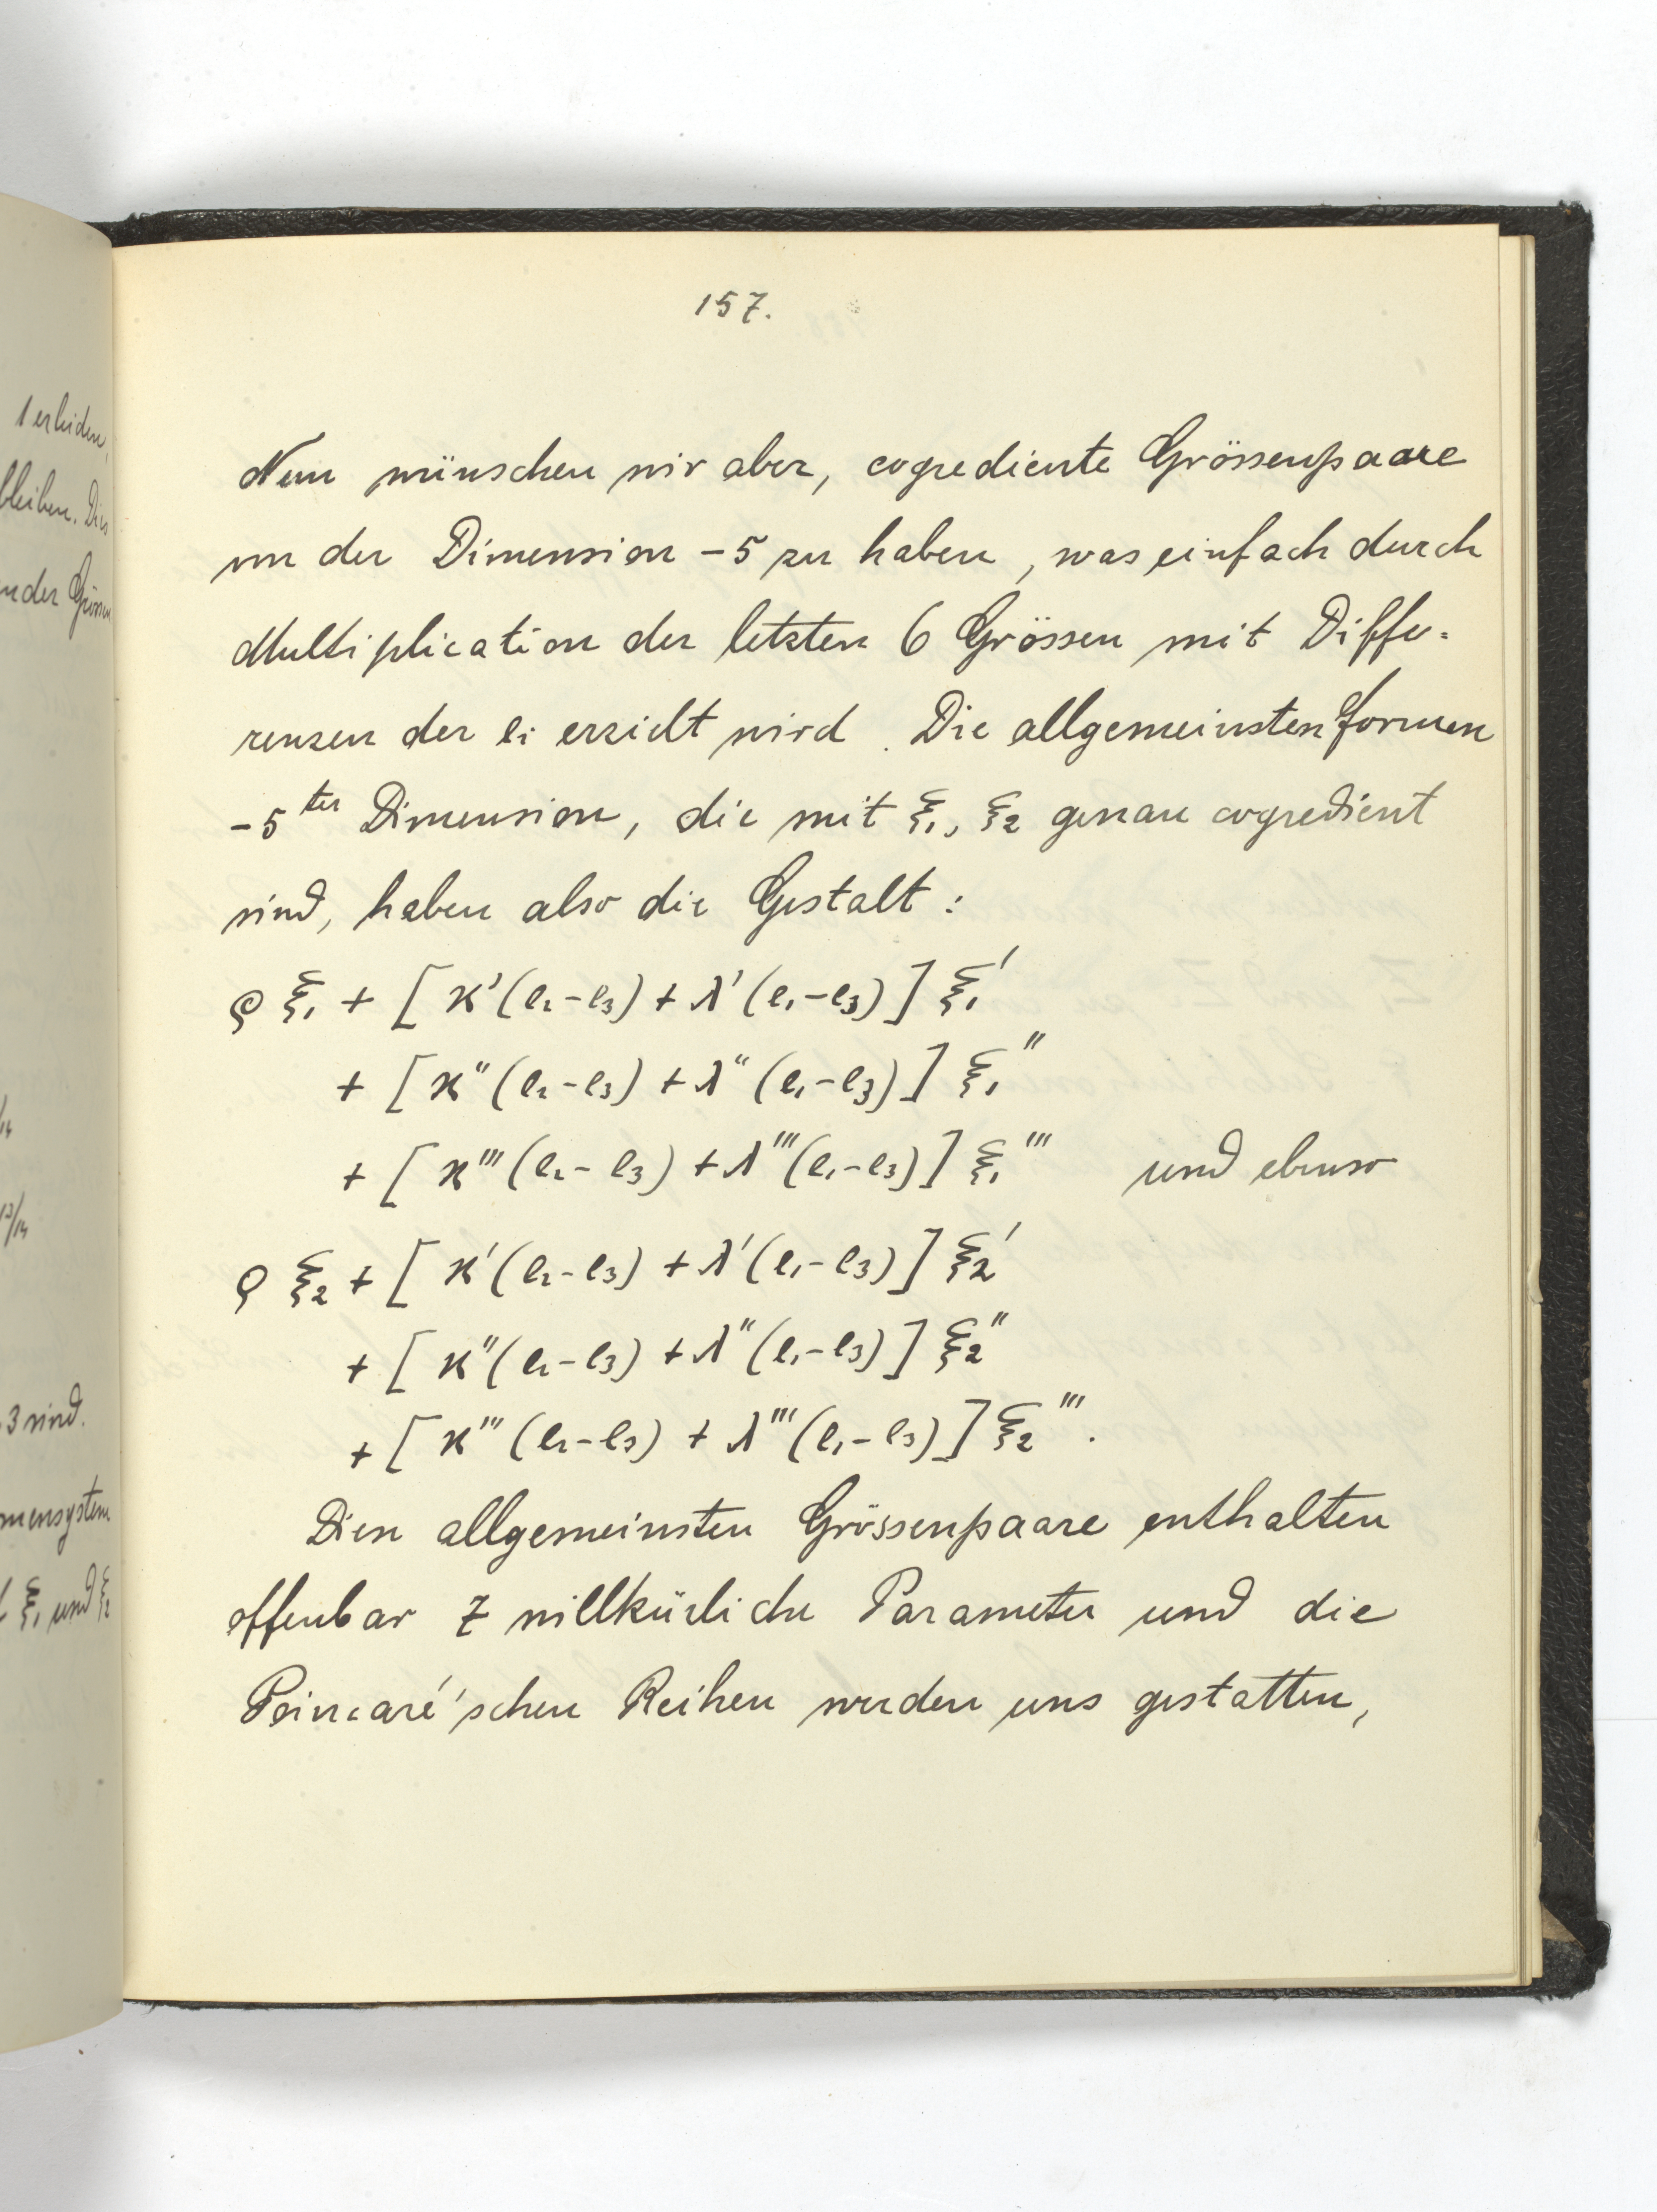 1 erleiden,
bleiben. Dies
3 sind.
ξ₁ und ξ₂
157.
Nun wünschen wir aber, cogrediente Grössenpaare
von der Dimension -5 zu haben, was einfach durch
Multiplication der letzten 6 Grössen mit Diffe-
renzen der eᵢ erzielt wird. Die allgemeinsten Formen
-5ter Dimension, die mit ξ₁, ξ₂ genau cogredient
sind, haben also die Gestalt:
ϱ ξ₁ + [ϰ'(e₂-e₃) + λ'(e₁-e₃)] ξ₁'
+ [ϰ''(e₂-e₃) + λ''(e₁-e₃)] ξ₁''
+ [ϰ'''(e₂-e₃) + λ'''(e₁-e₃)] ξ₁''' und ebenso
ϱ ξ₂ + [ϰ'(e₂-e₃) + λ'(e₁-e₃)] ξ₂'
+ [ϰ''(e₂-e₃) + λ''(e₁-e₃)] ξ₂''
+ [ϰ'''(e₂-e₃) + λ'''(e₁-e₃)] ξ₂'''.
Diese allgemeinsten Grössenpaare enthalten
offenbar 7 willkürliche Parameter und die
Poincaré'schen Reihen werden uns gestatten,